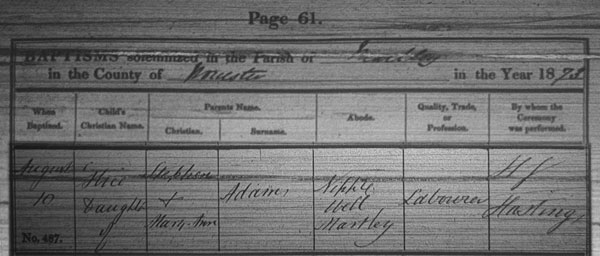 Page 61.
BAPTISMS solemnized in the Parish of Martley
in the County of Worcester in the Year 1878
When Baptized. Child's Christian Name. Parents Name. Christian. Surname. Abode. Quality, Trade, or Profession. By whom the Ceremony was performed.
August 10
Daughter of
Stephen + Mary Ann
Adams
Well Martley
Labourer
H J Hastings
No. 487.